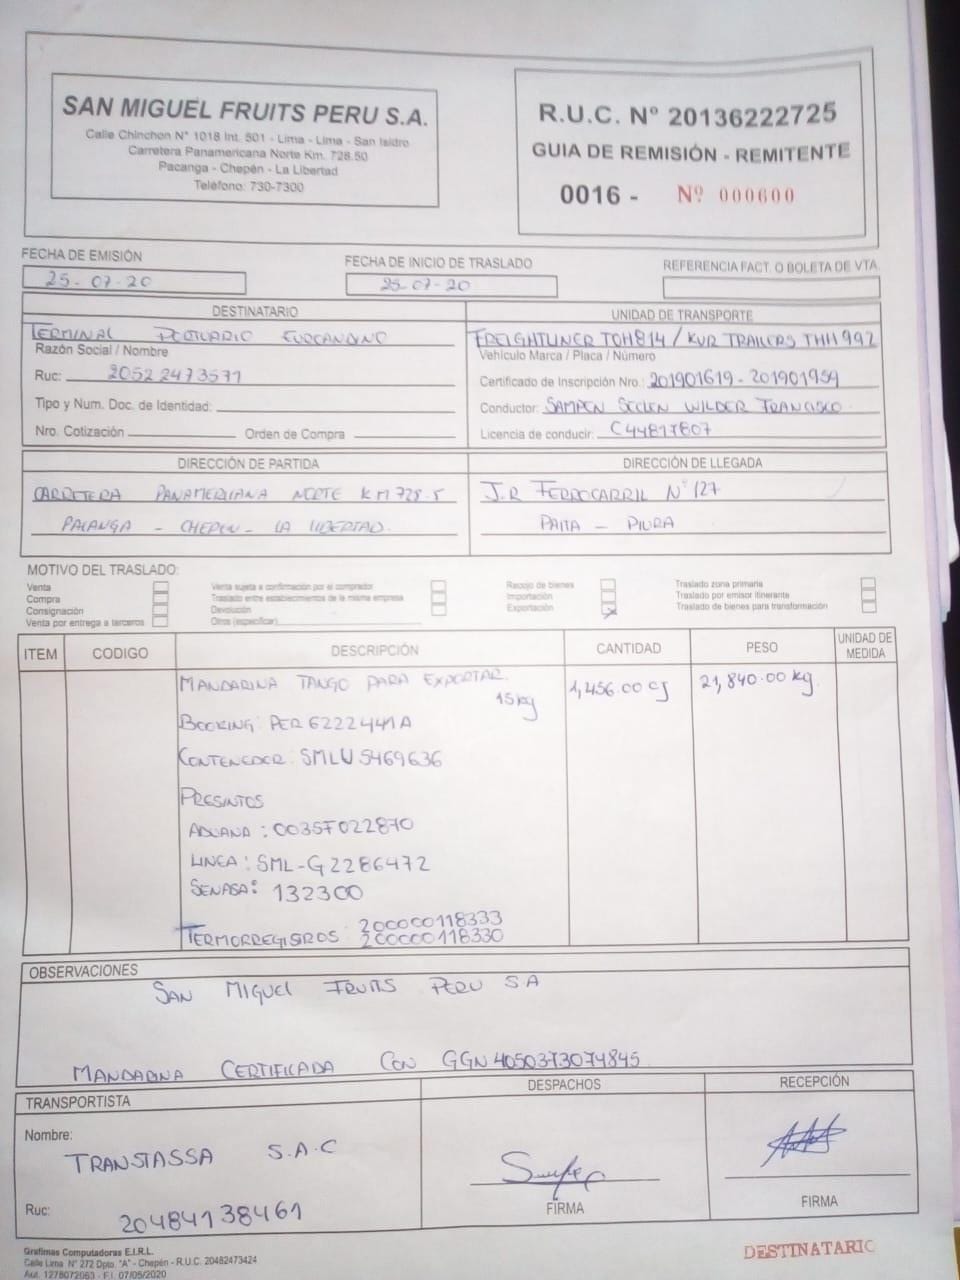 SAN MIGUEL FRUITS PERU S.A.
Calle Chinchon N° 1018 Int. 501 - Lima - Lima - San Isidro
Carretera Panamericana Norte Km. 728.50
Pacanga - Chepén - La Libertad
Teléfono: 730-7300
R.U.C. N° 20136222725
GUIA DE REMISIÓN - REMITENTE
0016 - Nº 000600
FECHA DE EMISIÓN
25-07-20
FECHA DE INICIO DE TRASLADO
25-07-20
REFERENCIA FACT. O BOLETA DE VTA.
DESTINATARIO
TERMINAL PORTUARIO EUROANDINO
Razón Social / Nombre
Ruc: 20522473571
Tipo y Num. Doc. de Identidad:
Nro. Cotización Orden de Compra
UNIDAD DE TRANSPORTE
FREIGHTLINER TOH814 / KUR TRAILERS THH992
Vehículo Marca / Placa / Número
Certificado de Inscripción Nro.: 201901619-201901959
Conductor: SAMPEN SECLEN WILDER FRANCISCO
Licencia de conducir: C44817807
DIRECCIÓN DE PARTIDA
CARRETERA PANAMERICANA NORTE KM 728.5
PACANGA - CHEPEN - LA LIBERTAD.
DIRECCIÓN DE LLEGADA
J.R FERROCARRIL N° 127
PAITA - PIURA
MOTIVO DEL TRASLADO:
Venta
Compra
Consignación
Venta por entrega a terceros
Venta sujeta a confirmación por el comprador
Traslado entre establecimientos de la misma empresa
Devolución
Otros (especificar)
Recojo de bienes
Importación
Exportación X
Traslado zona primaria
Traslado por emisor itinerante
Traslado de bienes para transformación
ITEM CODIGO DESCRIPCIÓN CANTIDAD PESO UNIDAD DE MEDIDA
MANDARINA TANGO PARA EXPORTAR 1,456.00 CJ 21,840.00 kg.
15kg
BOOKING: PER6222441A
CONTENEDOR: SMLU 5469636
PRESINTOS
ADUANA: 0035F022870
LINEA: SML-G2286472
SENASA: 132300
TERMORREGISTROS: 200000118333
200000118330
OBSERVACIONES
SAN MIGUEL FRUITS PERU SA
MANDARINA CERTIFICADA CON GGN 4050373074845
TRANSPORTISTA
Nombre:
TRANSTASSA S.A.C
Ruc: 20484138461
DESPACHOS
FIRMA
RECEPCIÓN
FIRMA
Grafimas Computadoras E.I.R.L.
Calle Lima N° 272 Dpto. "A" - Chepén - R.U.C. 20482473424
Aut. 1278072063 - F.I. 07/05/2020
DESTINATARIO